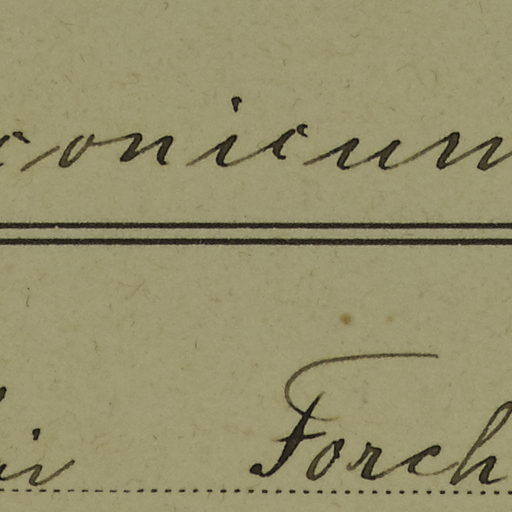 conicum
ir Forch